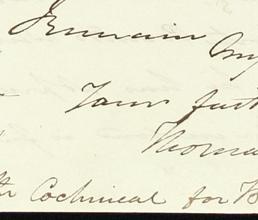 I remain my
Your fait
Thoma
th Cochineal for B